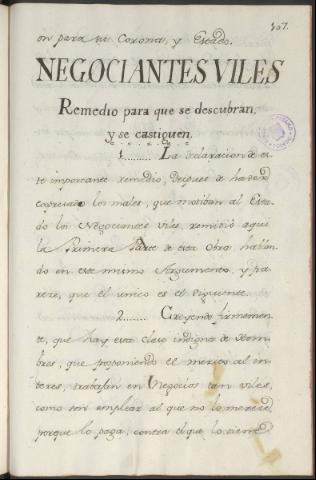 307.
on para su Corona, y Estado.
NEGOCIANTES VILES
Remedio para que se descubran,
y se castiguen.
1......... La declaracion de es-
te importante remedio, despues de haver
expresado los males, que motiban al Esta-
do los Negociantes viles, remitió aqui
la Primera Parte de esta Obra hablan-
do en este mismo Argumento, y pa-
rece, que el unico es el siguiente.
2....... Creyendo firmemen-
te, que hay esta clase indigna de Hom-
bres, que posponiendo el merito al in-
teres, trabajan en Negocios tan viles,
como son emplear al que no lo merece,
porque lo paga, contra el que lo tiene